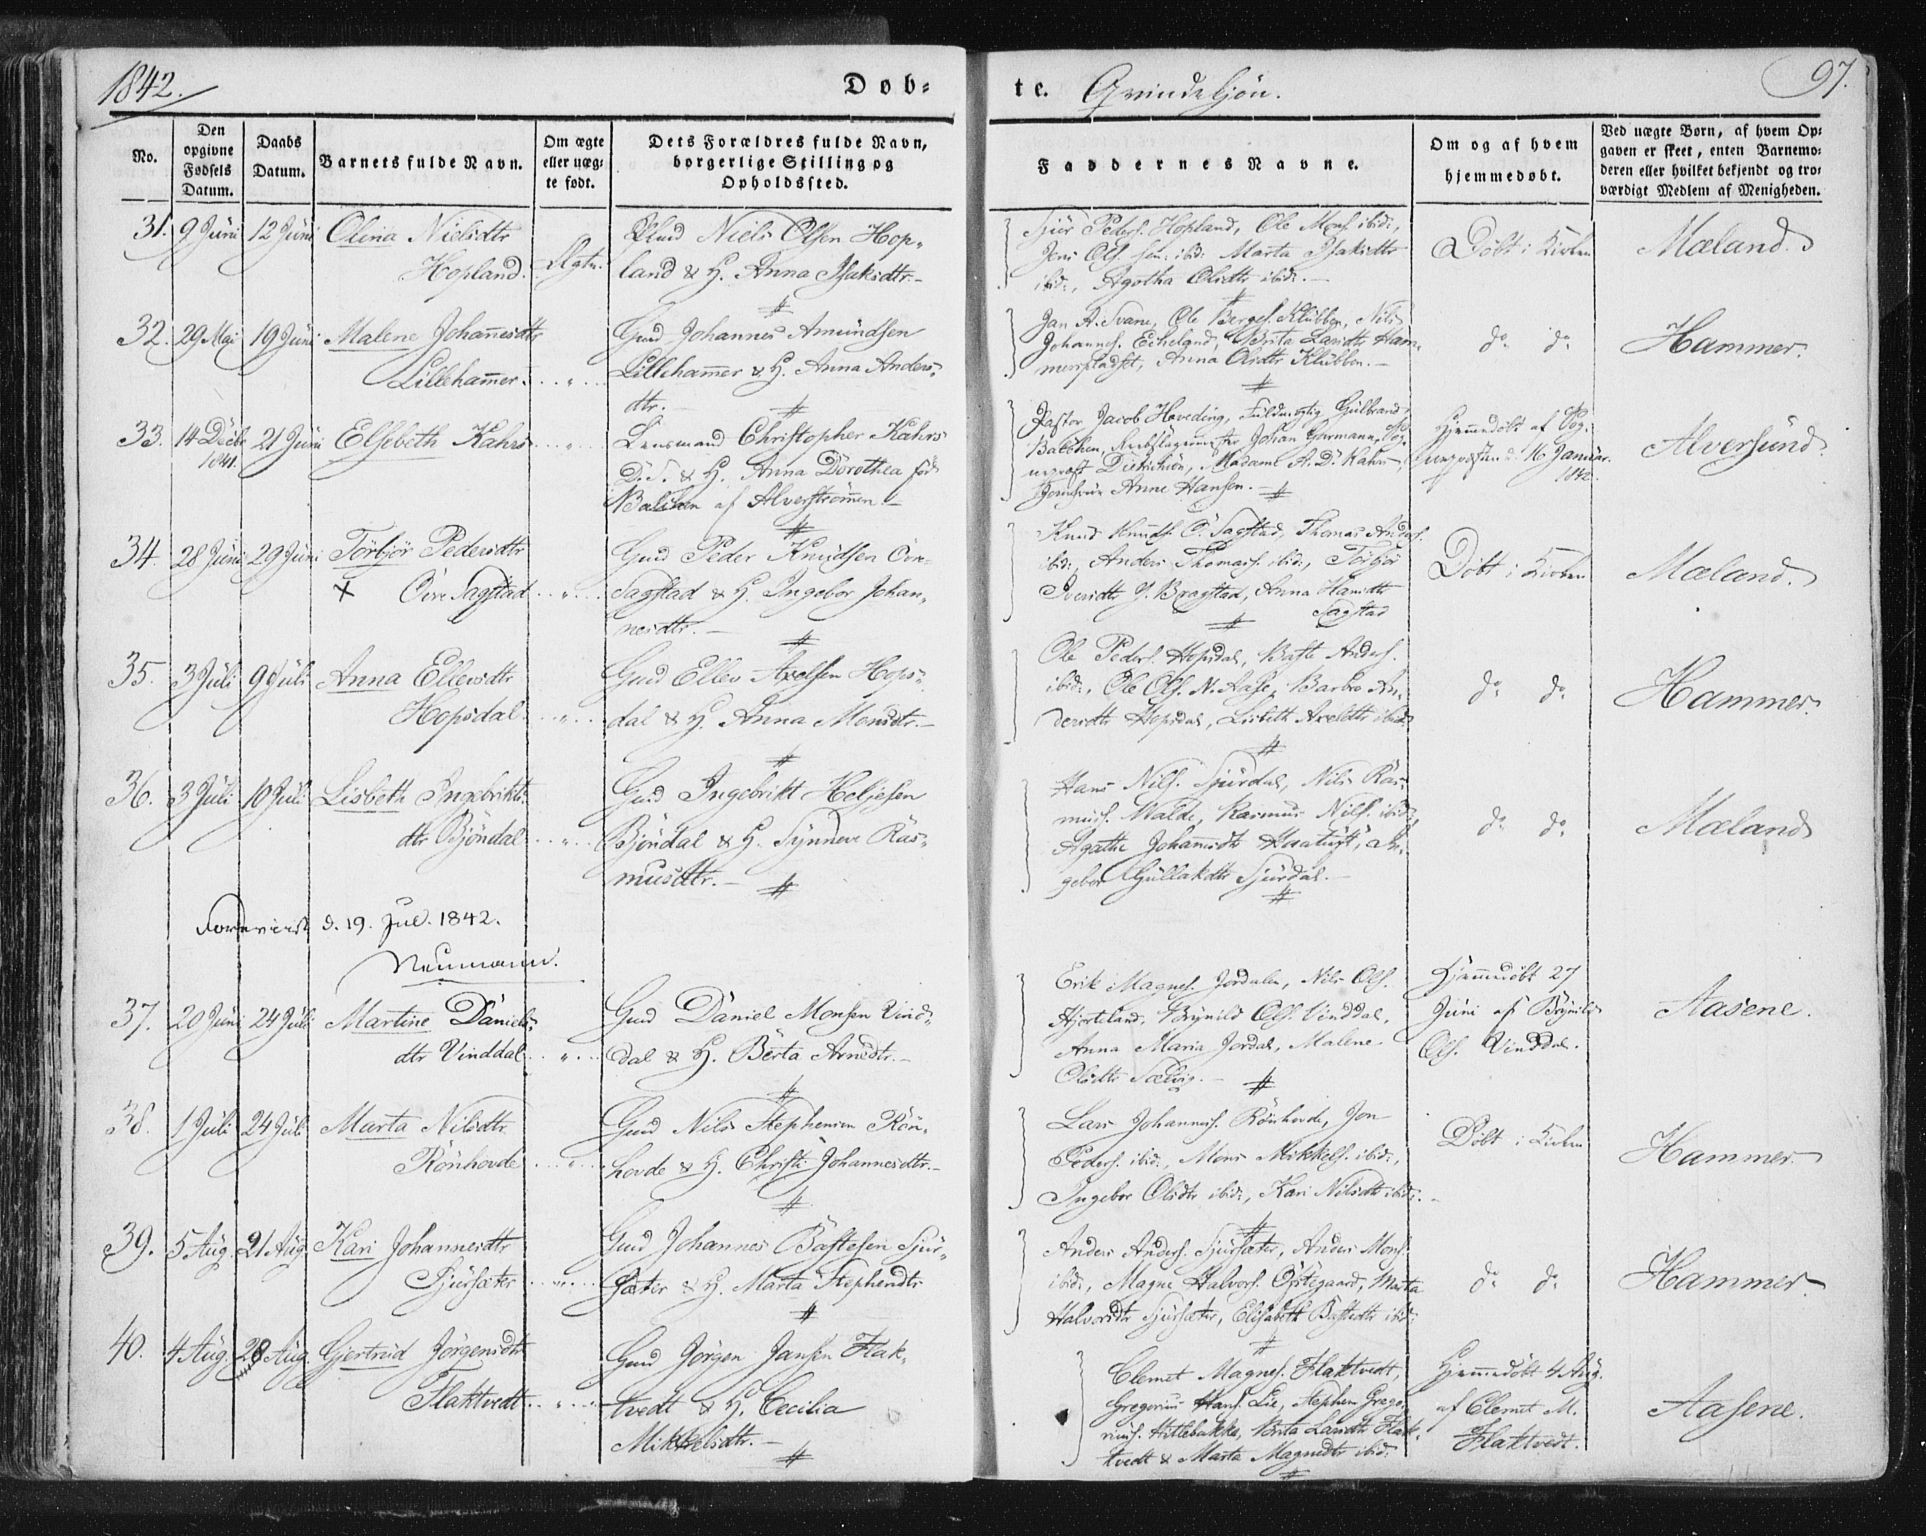 1842.
Døb-
te. Qvindekjön.
97.
No.
Den opgivne Fødsels Datum.
Daabs Datum.
Barnets fulde Navn.
Om ægte eller uæg-te født.
Dets Forældres fulde Navn, borgerlige Stilling og Opholdssted.
Faddernes Navne.
Om og af hvem hjemmedøbt.
Ved uægte Børn, af hvem Op-gaven er skeet, enten Barnemo-deren eller hvilket bekjendt og tro-værdigt Medlem af Menigheden.
31. 9 Juni 12 Juni Olina Nielsdtr
Hopland. Ægte.
Niels Olsen Hop-
land & H. Anna Isaksdtr.
Sjur Peders. Hopland, Ole Mons. ibid:,
Jens Ols. sen. ibid: Marta Isaksdtr
ibid:, Agatha Olsdtr ibid:
Döbt i Kirken
Mæland
32. 29 Mai 19 Juni Malene Johannesdtr
Lillehammer
Gmd Johannes Amundsen
Lillehammer & H. Anna Anders-
dtr.
Jan A. Svane, Ole Berges. Klubben, Nils
Johannes. Echeland, Brita Larsdtr Ham-
merspladset, Anna Olsdtr Klubben.
do do
Hammer.
33. 14 Decbr 1841. 21 Juni Elsebeth Kahrs
Lensmand Christopher Kahrs
D. S. & H. Anna Dorothea föd
Balchen af Alverströmmen
Pastor Jacob Heveding, Fuldmægtig Gulbrand
Balchen, Johan Garmann,
Dietrichson, Madame A. D. Kahrs
Jomfrue Anne Hansen.
Hjemmedöbt af
16 Januar 1842.
Alversund.
34. 28 Juni 29 Juni Torbjör Pedersdtr
+ Övre Sagstad
Gmd Peder Knudsen Övre
Sagstad & H. Ingebor Johan-
nesdtr.
Knud Knuds. Ö. Sagstad, Thomas Anders.
ibid:, Anders Thomass. ibid:, Torbjör
Iversdtr Y. Bragstad, Anna Hansdtr
Sagstad
Döbt i Kirken
Mæland.
35. 3 Juli 9 Juli Anna Ellevsdtr
Hopsdal
Gmd Ellev Axelsen Hops-
dal & H. Anna Monsdtr.
Ole Peders. Hopsdal, Baste Anders.
ibid:, Ole Ols. N. Aase, Barbro An-
dersdtr Hopsdal, Lisbeth Axelsdtr ibid:
do do
Hammer.
36. 3 Juli 10 Juli Lisbeth Ingebrikts-
dtr Bjöndal
Gmd Ingebrikt Heljesen
Bjöndal & H. Synneve Ras-
musdtr.
Hans Nils. Sjurdal, Nils Ras-
mus. Walde, Rasmus Nils. ibid:,
Agathe Johannesdtr In-
gebor Gullaksdtr Sjurdal.
do do
Mæland
d. 19. Jul. 1842.
Neumann.
37. 20 Juni 24 Juli Martine Daniels-
dtr Vinddal
Gmd Daniel Monsen Vind-
dal & H. Berta Arnesdtr.
Erik Magnes. Jordalen, Nils Ols.
Hjorteland, Brynild Ols. Vinddal,
Anna Maria Jordal, Malene
Olsdtr Sælvig.
Hjemmedöbt 27
Juni af Brynild
Ols. Vinddal.
Aasene.
38. 1 Juli 24 Juli Marta Nilsdtr
Rönhovde
Gmd Nils Stephensen Rön-
hovde & H. Christi Johannesdtr.
Lars Johannes. Rönhovde, Jon
Peders. ibid:, Mons Mikkels. ibid:,
Ingebor Olsdtr ibid:, Kari Nilsdtr ibid:
Döbt i Kirken
Hammer.
39. 5 Aug. 21 Aug. Kari Johannesdtr
Sjursæter
Gmd Johannes Bastesen Sjur-
sæter & H. Marta Stephensdtr
Anders Anders. Sjursæter, Anders Mons.
ibid:, Magne Halvors. Östegaard, Marta
Halvorsdtr Sjursæter, Elisabeth Bastesdtr ibid:
do do
Hammer.
40. 4 Aug. 28 Aug. Gjertrud Jörgensdtr
Flaktvedt
Gmd Jörgen Jansen Flak-
tvedt & H. Cecilia
Mikkelsdtr.
Clemet Magnes. Flaktvedt,
Gregorius Hans. Lie, Stephen Grego-
rius. Hillebakke, Brita Larsdtr Flak-
tvedt & Marta Magnesdtr ibid:
Hjemmedöbt 4 Aug.
af Clemet M.
Flaktvedt.
Aasene.